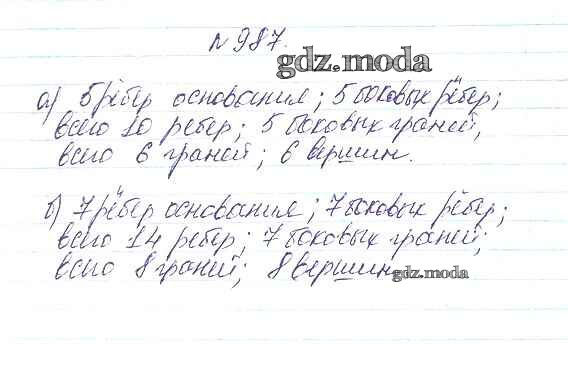 №987.
gdz.moda
а) 5 рёбер основания; 5 боковых рёбер;
всего 10 ребер; 5 боковых граней,
всего 6 граней; 6 вершин.
б) 7 рёбер основания; 7 боковых рёбер;
всего 14 ребер; 7 боковых граней;
всего 8 граней; 8 вершин
gdz.moda